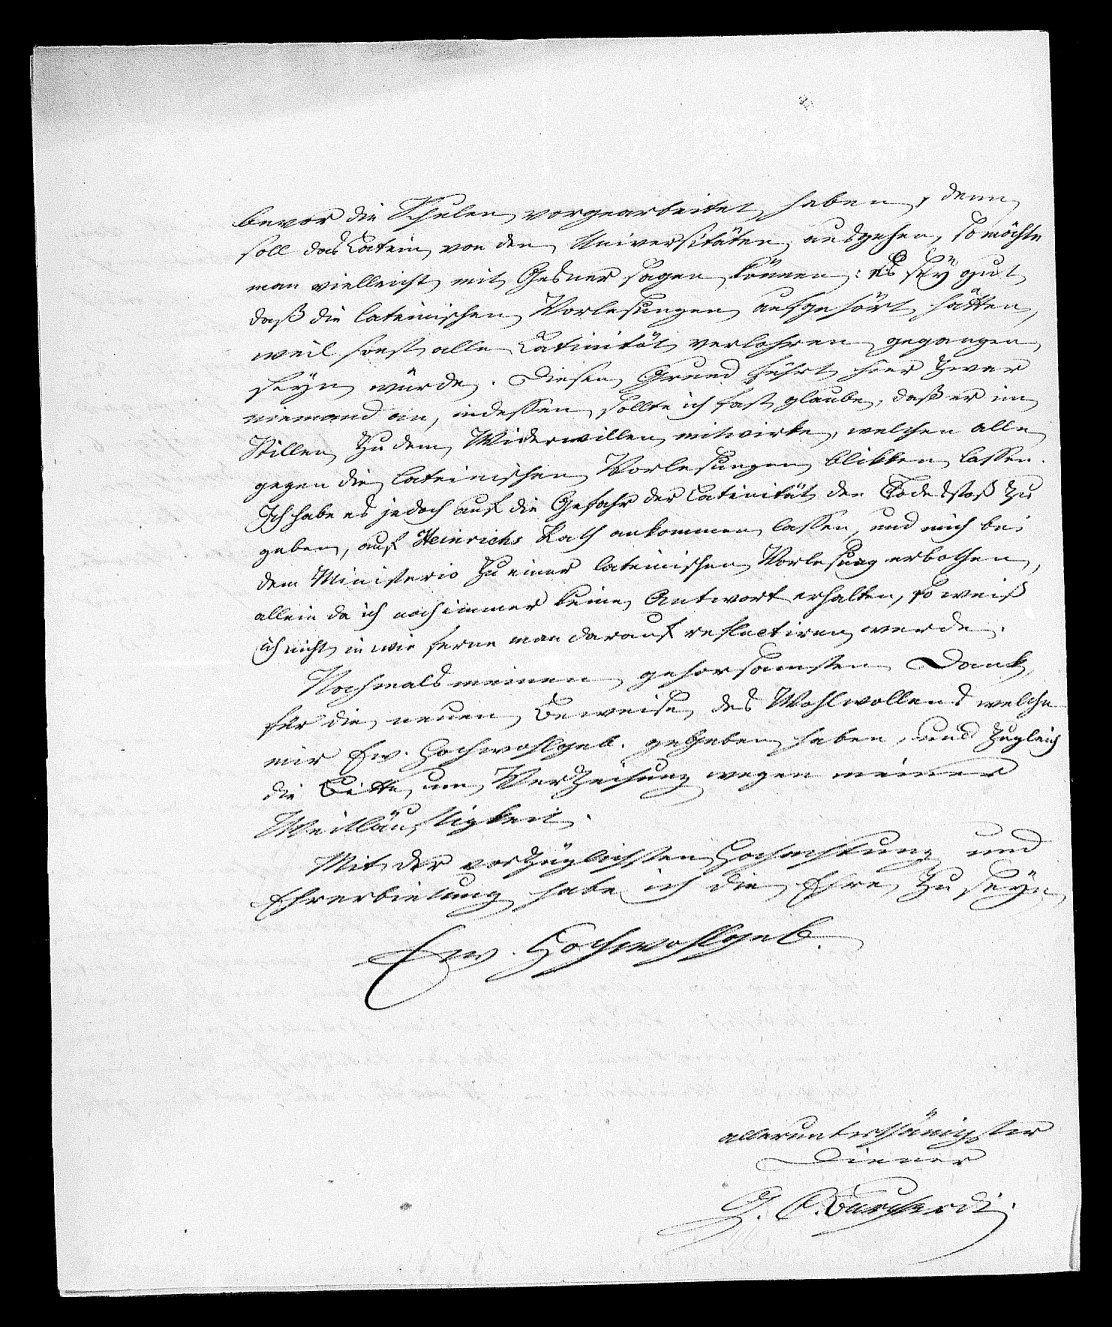 bevor die Schulen vorgearbeitet haben, denn
soll das Latein von den Universitäten ausgehen, so möchte
man vielleicht mit Gesner sagen können: Es sey gut
daß die lateinischen Vorlesungen aufgehört hätten,
weil sonst alle Latinität verlohren gegangen
seyn würde. Diesen Grund führt hier zwar
niemand an, indessen sollte ich fast glauben, daß er im
Stillen zu dem Widerwillen mitwirke, welchen alle
gegen die lateinischen Vorlesungen blikken lassen.
Ich habe es jedoch auf die Gefahr der Latinität den Todesstoß zu
geben, auf Heinrichs Rath ankommen lassen, und mich bei
dem Ministerio zu einer lateinischen Vorlesung erbothen,
allein da ich noch immer keine Antwort erhalten, so weiß
ich nicht in wie ferne man darauf reflectiren werde.
Nochmals meinen gehorsamsten Dank
für die neuen Beweise des Wohlwollens welche
mir Ew. Hochwohlgeb. gegeben haben, und zugleich
die Bitte um Verzeihung wegen meiner
Weitläuftigkeit.
Mit der vorzüglichsten Hochachtung und
Ehrerbietung habe ich die Ehre zu seyn
Ew. Hochwohlgeb.
allerunterthänigster
Diener